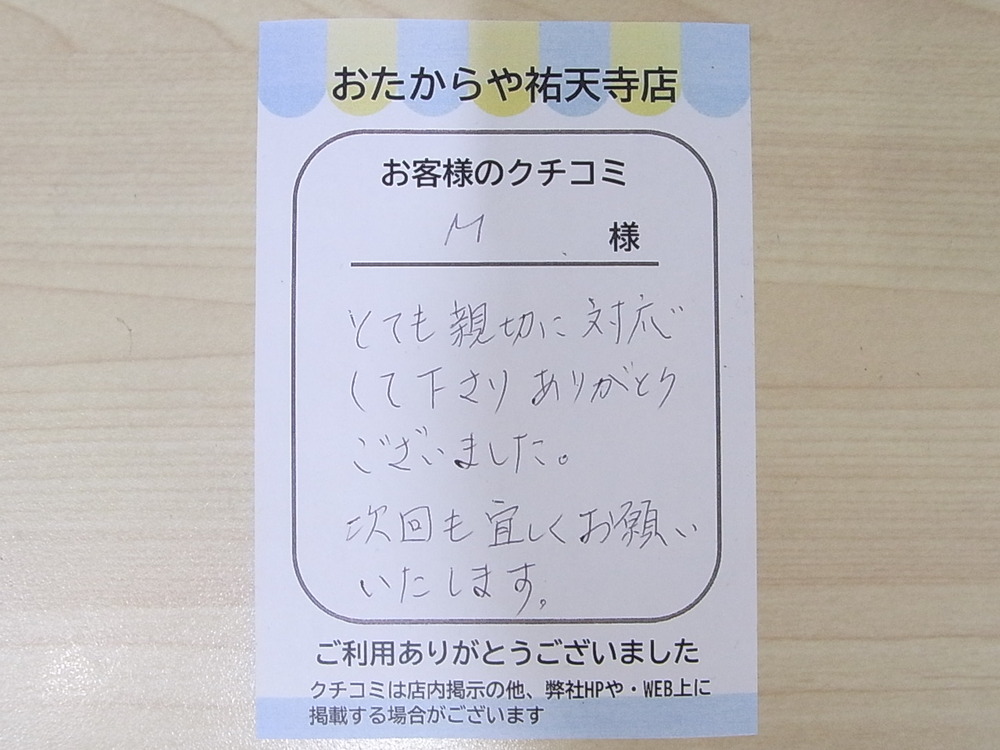 おたからや祐天寺店
お客様のクチコミ
M 様
とても親切に対応
して下さりありがとう
ございました。
次回も宜しくお願い
いたします。
ご利用ありがとうございました
クチコミは店内掲示の他、弊社HPや・WEB上に
掲載する場合がございます